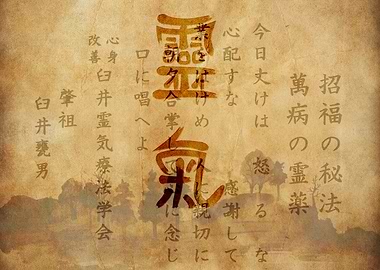 靈氣
招福の秘法
萬病の霊薬
今日丈けは 怒るな
心配すな 感謝して
業をはけめ 人に親切に
朝夕合掌して心に念じ
口に唱へよ
心身
改善
臼井霊気療法学会
肇祖
臼井甕男